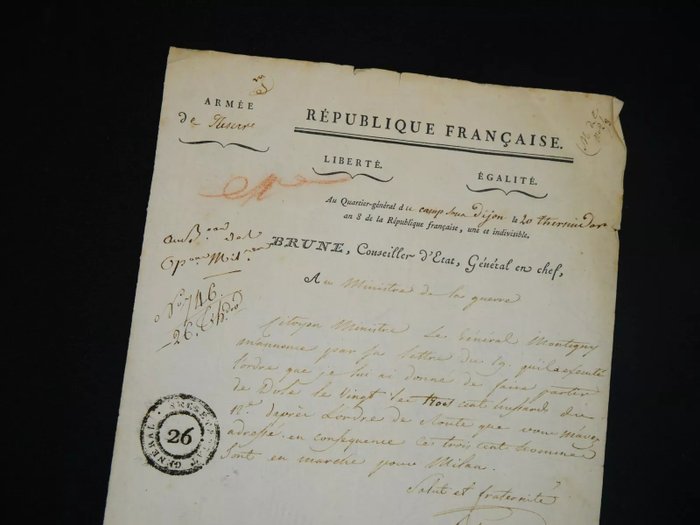 ARMÉE
de Réserve
RÉPUBLIQUE FRANÇAISE.
LIBERTÉ.
ÉGALITÉ.
Au Quartier-général du camp sous dijon le 20 thermidor
an 8 de la République française, une et indivisible.
BRUNE, Conseiller d'Etat, Général en chef,
Au Ministre de la guerre
au B.
N.º 746.
26. th.dor
Citoyen Ministre Le Général Montigny
m'annonce par sa lettre du 19. qu'il a exécuté
l'ordre que je lui ai donné de faire partir
de Dôle le Vingt trois cent hussard du
12.e d'après L'ordre de Route que vous m'avez
adressé. en conséquence ces trois cent hommes
sont en marche pour Milan.
Salut et fraternité
GÉNÉRAL
26